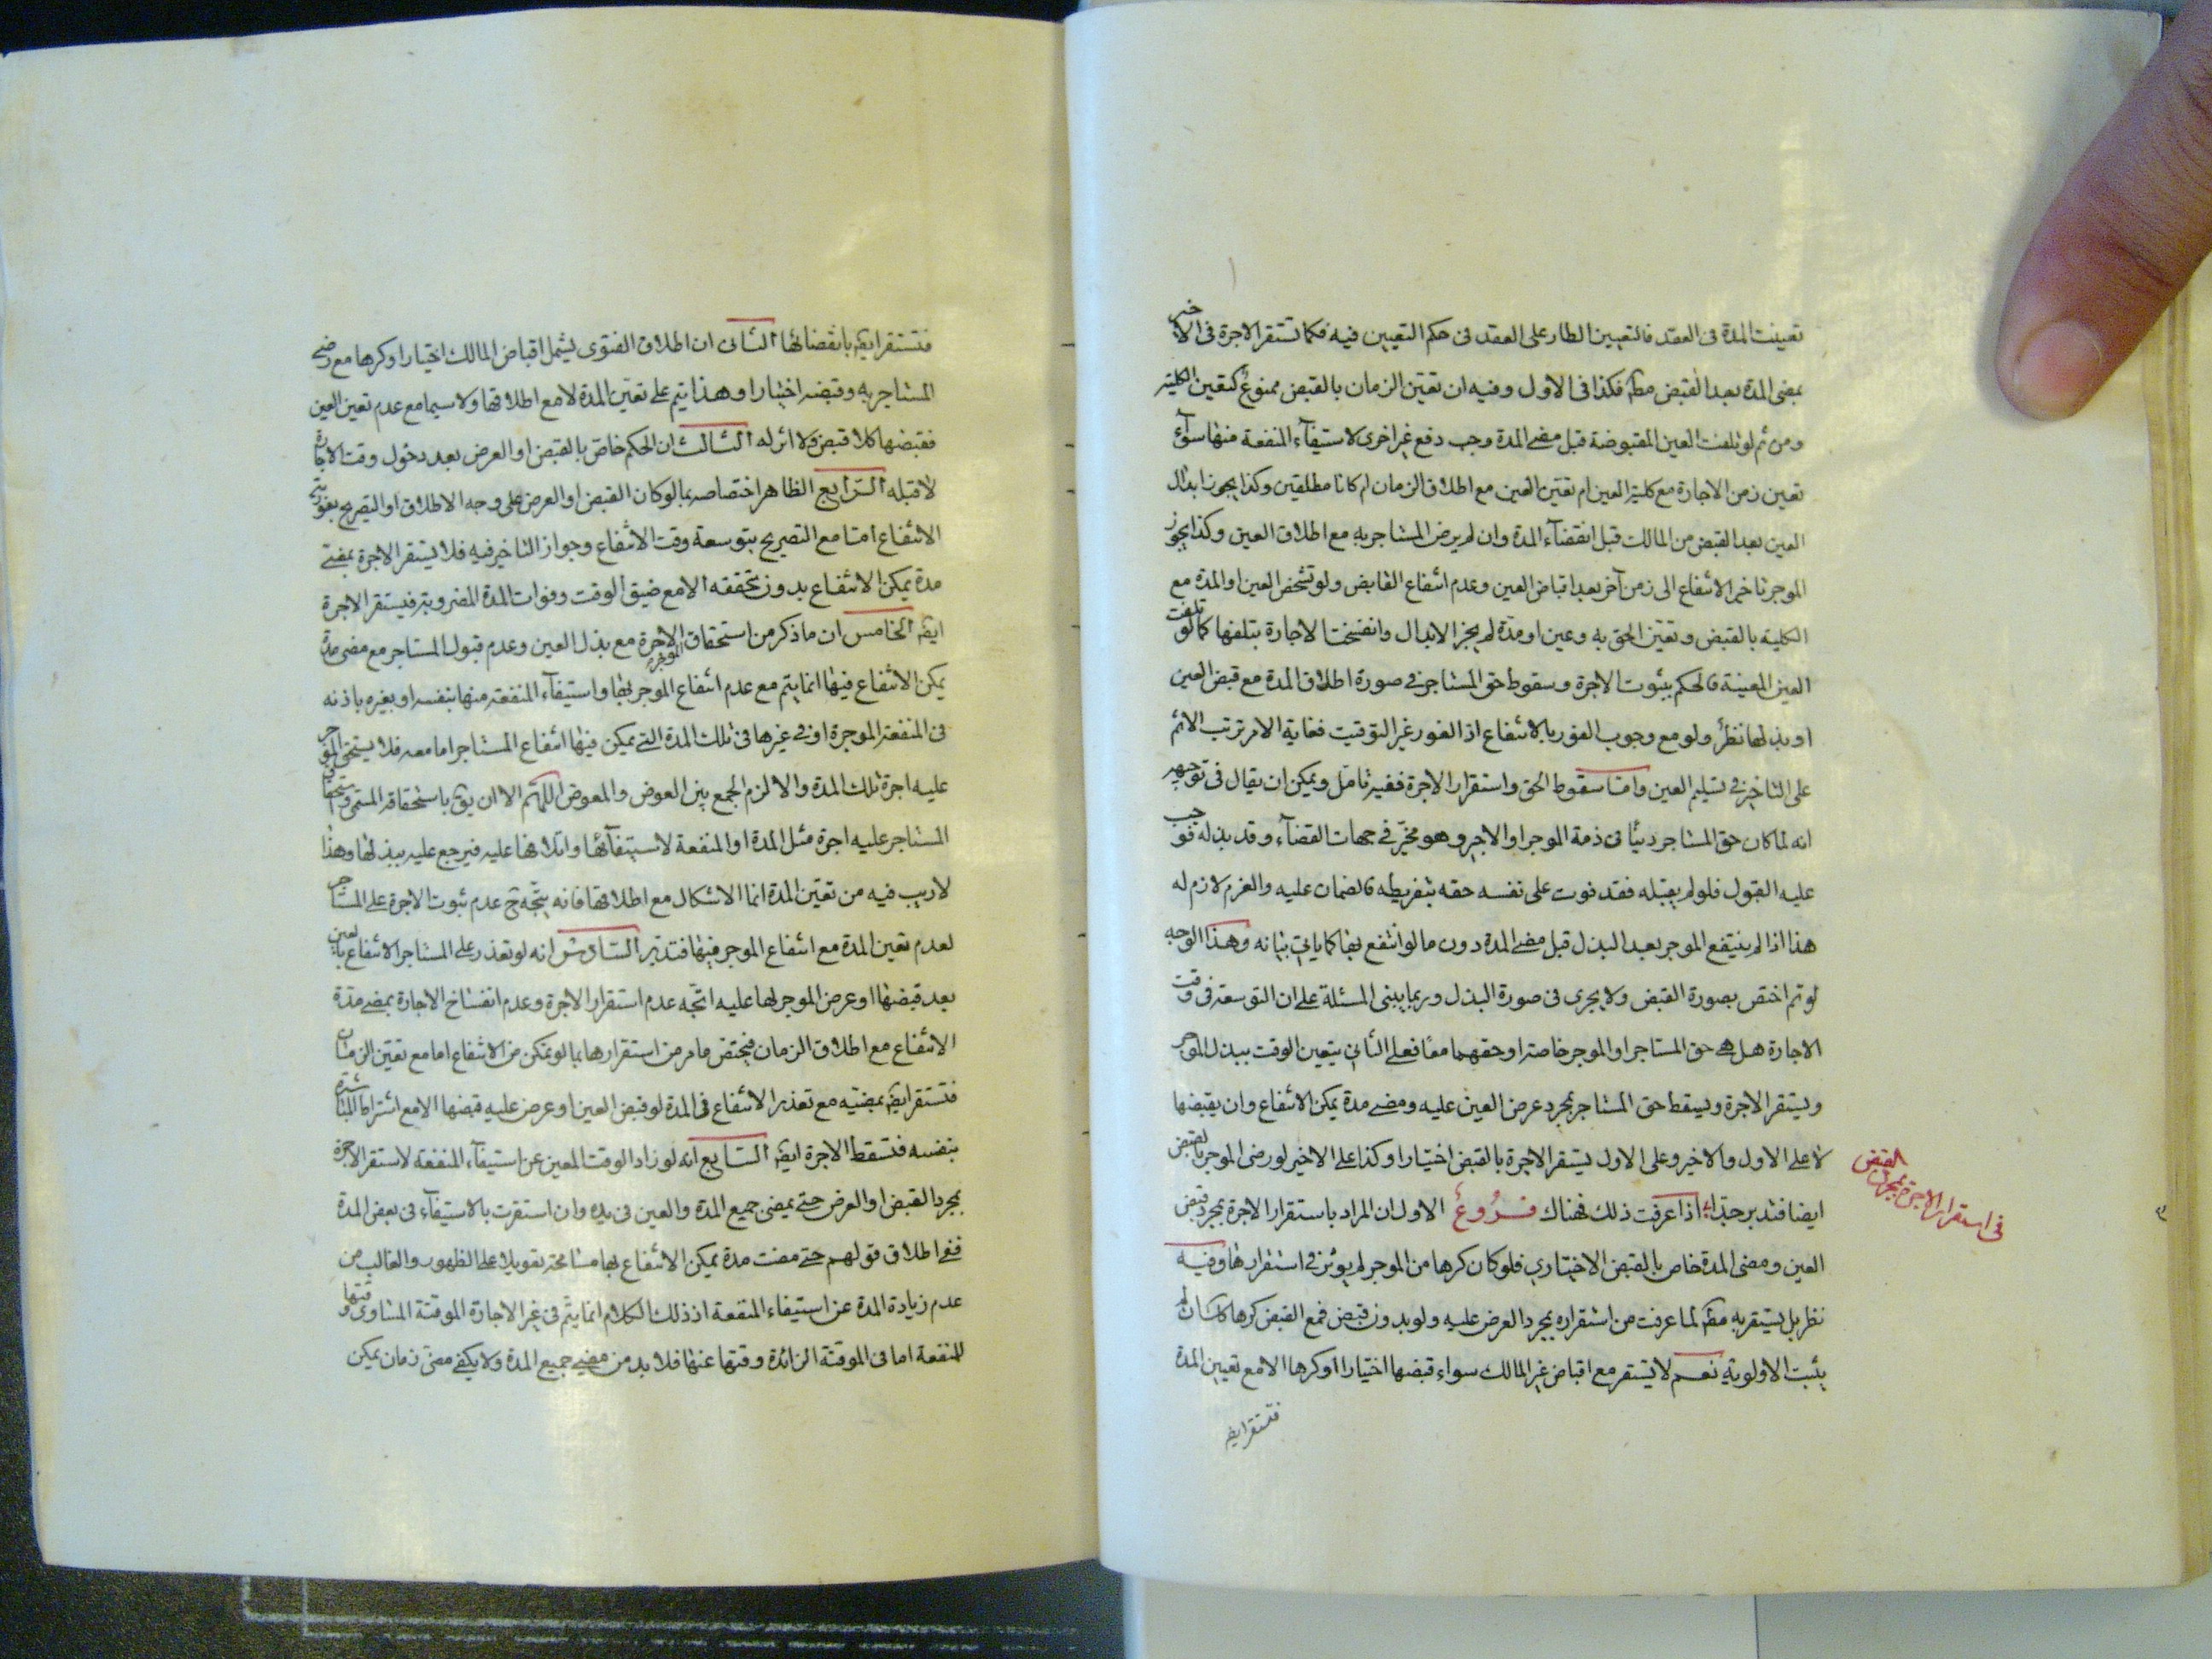 تعينت المدة فى العقد فالتعيين الطار على العقد فى حكم التعيين فيه فكما تستقر الاجرة فى الاخير
بمضى المدة بعد القبض مطم فكذا فى الاول وفيه ان تعيّن الزمان بالقبض ممنوع كتعين الكلية
ومن ثم لو تلفت العين المقبوضة قبل مضے المدة وجب دفع غير اخرى لاستيفآء المنفعة منها سوآء
تعين زمن الاجارة مع كلية العين ام تعيّن العين مع اطلاق الزمان ام كانا مطلقين وكذا يجوز ابدال
العين بعد القبض من المالك قبل انقضآء المدة وان لم يرض المستاجر به مع اطلاق العين وكذا يجوز
الموجر تاخير الانتفاع الى زمن آخر بعد اقباض العين وعدم انتفاع القابض ولو تشخص العين او المدة مع
الكلية بالقبض وتعيّن الحق به وعين او مدّة لم يجز الابدال وانفسخت الاجارة بتلفها كما لو تلفت
العين المعينة فالحكم بثبوت الاجرة وسقوط حق المستاجر فے صورة اطلاق المدة مع قبض العين
او بذلها نظر ولو مع وجوب الفور بالانتفاع اذ الفور غير التوقيت فغاية الامر ترتب الاثم
على التاخير فے تسليم العين وامّا سقوط الحق واستقرار الاجرة ففيه تامّل ويمكن ان يقال فى توجيهه
انه لما كان حق المستاجر دينًا فى ذمة الموجر او الاجير وهو مخيّر فے جهات القضآء وقد بذله فوجب
عليه القبول فلو لم يقبله فقد فوت على نفسه حقه بتفريطه فالضمان عليه والغرم لازم له
هذا اذا لم ينتفع الموجر بعد البذل قبل مضے المدة دون ما لو انتفع بها كما ياتى بيانه وهذا الوجه
لو تم اختص بصورة القبض ولا يجرى فى صورة البذل وربما يبنى المسئلة على ان التوسعة فى وقت
الاجارة هل هے حق المستاجر او الموجر خاصة او حقهما معًا فعلى الثانى يتعين الوقت ببذل الموجر
ويستقر الاجرة ويسقط حق المستاجر بمجرد عرض العين عليه ومضے مدة يمكن الانتفاع وان يقبضها
لا على الاول والاخير وعلى الاول يستقر الاجرة بالقبض اختيارا وكذا على الاخير لو رضى الموجر بالقبض
ايضا فتدبر جدّا اذا عرفت ذلك فهناك فروعٌ الاول ان المراد باستقرار الاجرة بمجرد قبض
العين ومضى المدة خاص بالقبض الاختيارى فلو كان كرها من الموجر لم يوثر فے استقرارها وفيه
نظر بل يستقر به مطم لما عرفت من استقراره بمجرد العرض عليه ولو بدون قبض فمع القبض كرها كان
يثبت الاولوية نعم لا يستقر مع اقباض غير المالك سواء قبضها اختيارا او كرها الا مع تعيين المدة
فتستقر ايضا
فى استقرار الاجرة بمجرد القبض
فتستقر ايضا بانقضائها الثانى ان اطلاق الفتوى يشمل اقباض المالك اختيارا او كرها مع رضى
المستاجر به وقبضه اختيارا وهذا يتم على تعيّن المدة لا مع اطلاقها ولا سيما مع عدم تعين العين
فقبضها كلا قبض ولا اثر له الثالث ان الحكم خاص بالقبض او العرض بعد دخول وقت الاجارة
لا قبله الرابع الظاهر اختصاصه بما لو كان القبض او العرض على وجه الاطلاق او التصريح بفورية
الانتفاع امّا مع التصريح بتوسعة وقت الانتفاع وجواز التاخير فيه فلا يستقر الاجرة بمضے
مدة يمكن الانتفاع بدون تحققه الا مع ضيق الوقت وفوات المدة المضروبة فيستقر الاجرة
ايضا الخامس ان ما ذكر من استحقاق الاجرة مع بذل العين وعدم قبول المستاجر مع مضى مدّة
يمكن الانتفاع فيها انما يتم مع عدم انتفاع الموجر بها واستيفآء المنفعة منها بنفسه او بغيره باذنه
فى المنفعة الموجرة او فے غيرها فى تلك المدة التے يمكن فيها انتفاع المستاجر اما معه فلا يستحق الموجر
عليه اجرة تلك المدة والا لزم الجمع بين العوض والمعوض اللهمّ الا ان يقَ باستحقاقه المسمى واستحقاق
المستاجر عليه اجرة مثل المدة او المنفعة لاستيفآئها واتلافها عليه فيرجع عليه ببذلها وهذا
لا ريب فيه من تعيّن المدة انما الاشكال مع اطلاقها فانه يتّجه ح عدم ثبوت الاجرة على المستاجر
لعدم تعين المدة مع انتفاع الموجر فيها فتدبّر السادس انه لو تعذر على المستاجر الانتفاع بالعين
بعد قبضها او عرض الموجر لها عليه اتّجه عدم استقرار الاجرة وعدم انفساخ الاجارة بمضے مدّة
الانتفاع مع اطلاق الزمان فيختص ما مر من استقرارها بما لو تمكن من الانتفاع اما مع تعيّن الزمان
فتستقر ايضا بمضيّه مع تعذر الانتفاع فى المدة لو قبض العين او عرض عليه قبضها الا مع اشتراط المباشرة
بنفسه فتسقط الاجرة ايضا السابع انه لو زاد الوقت المعين عن استيفآء المنفعة لا ستقر الاجرة
بمجرد القبض او العرض حتے يمضى جميع المدة والعين فى يده وان استقرت بالاستيفآء فى بعض المدة
ففے اطلاق قولهم حتے مضت مدة يمكن الانتفاع بها مسامحة تعويلا على الظهور والغالب من
عدم زيادة المدة عن استيفاء المنفعة اذ ذلك الكلام انما يتم فى غير الاجارة الموقتة المساوى وقتها
للمنفعة اما فى الموقتة الزائدة وقتها عنها فلا بد من مضے جميع المدة ولا يكفے مضىّ زمان يمكن